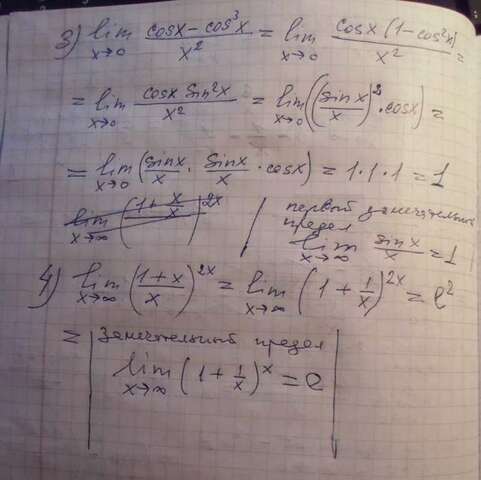 3) lim x→0 (cosx − cos³x)/x² = lim x→0 (cosx (1−cos²x))/x² =
= lim x→0 (cosx sin²x)/x² = lim x→0 ((sinx/x)² · cosx) =
= lim x→0 (sinx/x · sinx/x · cosx) = 1·1·1 = 1
lim x→∞ ((1+x)/x)^2x
первый замечательный
предел
lim x→0 sinx/x = 1
4) lim x→∞ ((1+x)/x)^2x = lim x→∞ (1 + 1/x)^2x = e²
= | Замечательный предел
lim x→∞ (1 + 1/x)^x = e |